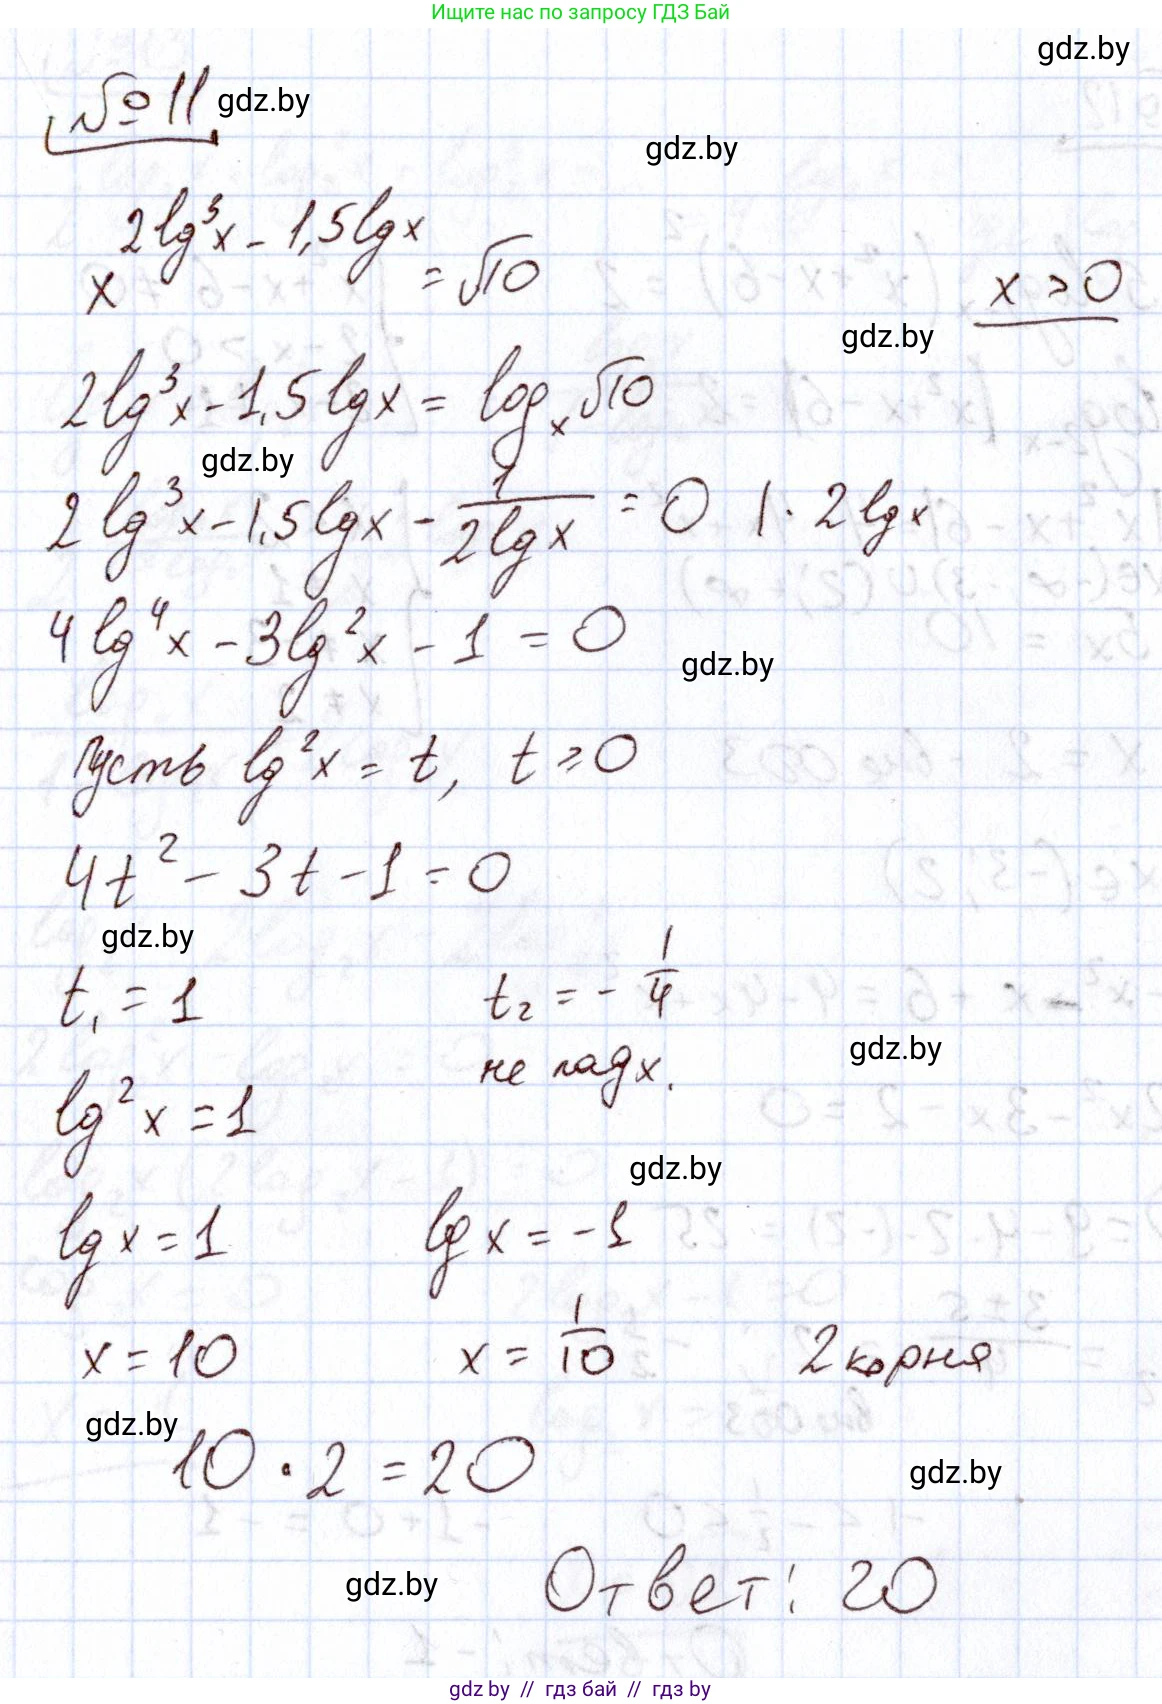 Ищите нас по запросу ГДЗ Бай
gdz.by
№ 11 gdz.by
gdz.by
x^(2lg³x - 1,5lgx) = √10
x > 0
gdz.by
2lg³x - 1,5lgx = log_x √10
gdz.by
2lg³x - 1,5lgx - 1/(2lgx) = 0 | · 2lgx
4lg⁴x - 3lg²x - 1 = 0
gdz.by
Пусть lg²x = t, t ≥ 0
4t² - 3t - 1 = 0
gdz.by
t₁ = 1 t₂ = - 1/4
не подх.
gdz.by
lg²x = 1
gdz.by
lgx = 1 lgx = -1
x = 10 x = 1/10 2 корня
gdz.by
10 · 2 = 20
gdz.by
Ответ: 20
gdz.by
gdz.by // гдз бай // гдз by